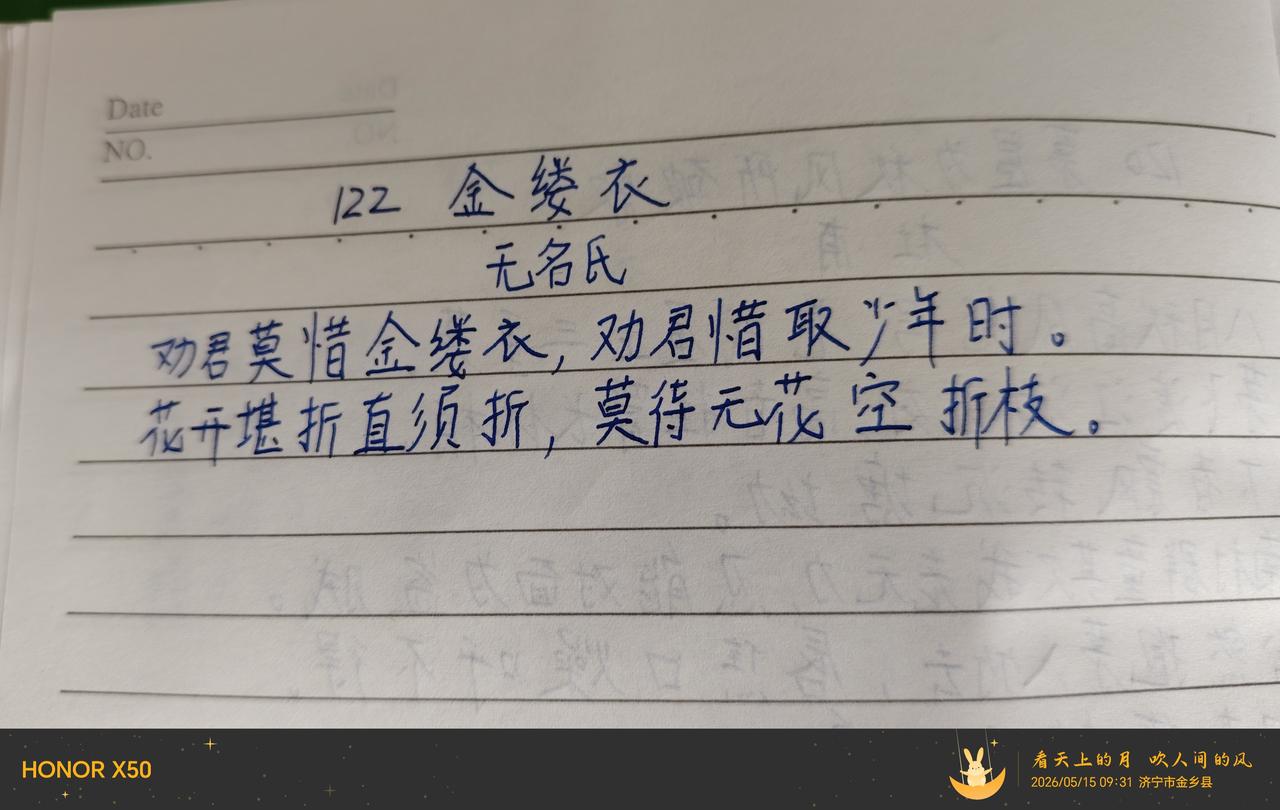 Date
NO.
122 金缕衣
无名氏
劝君莫惜金缕衣,劝君惜取少年时。
花开堪折直须折,莫待无花空折枝。
HONOR X50
看天上的月 吹人间的风
2026/05/15 09:31 济宁市金乡县